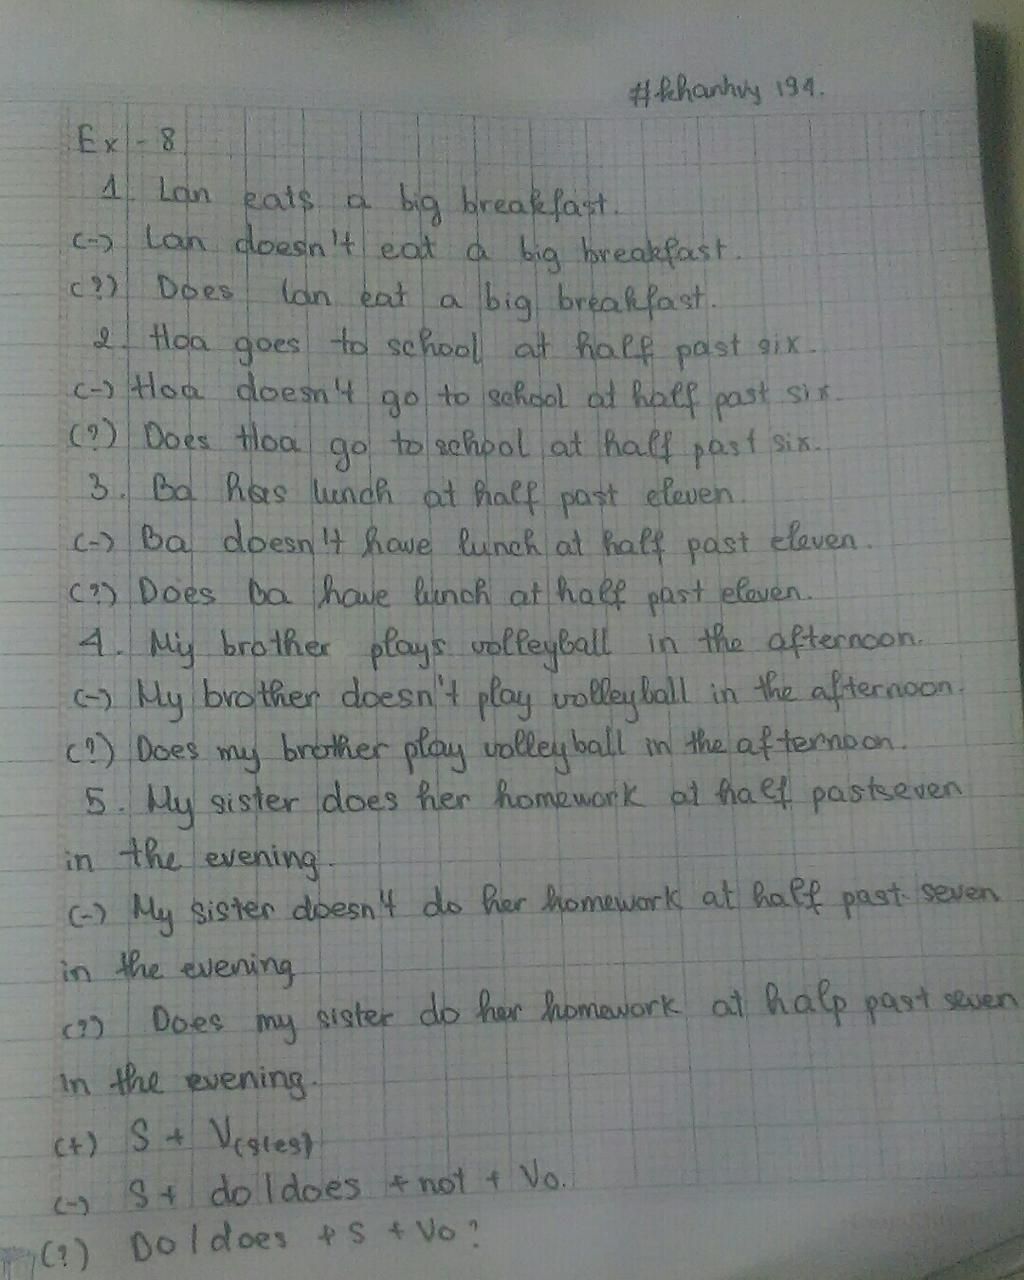 #khanhvy 194.
Ex - 8
1 Lan eats a big breakfast.
(-) Lan doesn't eat a big breakfast.
(?) Does Lan eat a big breakfast.
2. Hoa goes to school at half past six.
(-) Hoa doesn't go to school at half past six.
(?) Does Hoa go to school at half past six.
3. Ba has lunch at half past eleven.
(-) Ba doesn't have lunch at half past eleven.
(?) Does Ba have lunch at half past eleven.
4. My brother plays volleyball in the afternoon.
(-) My brother doesn't play volleyball in the afternoon.
(?) Does my brother play volleyball in the afternoon.
5. My sister does her homework at half past seven
in the evening.
(-) My sister doesn't do her homework at half past seven
in the evening
(?) Does my sister do her homework at halp past seven
in the evening.
(+) S + V(s/es)
(-) S + do/does + not + Vo.
(?) Do/does + S + Vo?